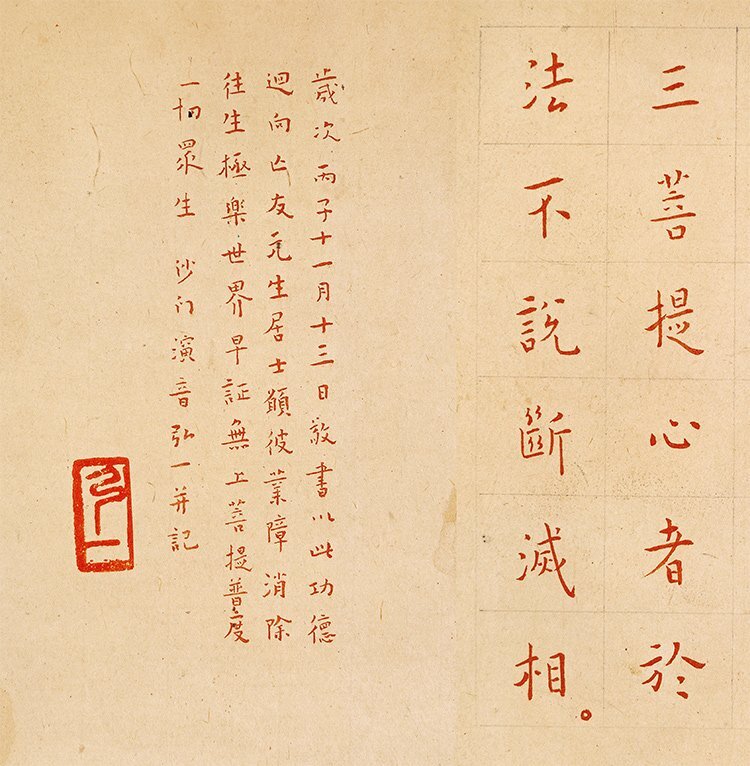 三菩提心者於
法不說斷滅相。
歲次丙子十一月十三日敬書以此功德
迴向亡友元生居士願彼業障消除
往生極樂世界早証無上菩提普度
一切眾生 沙门演音弘一并記